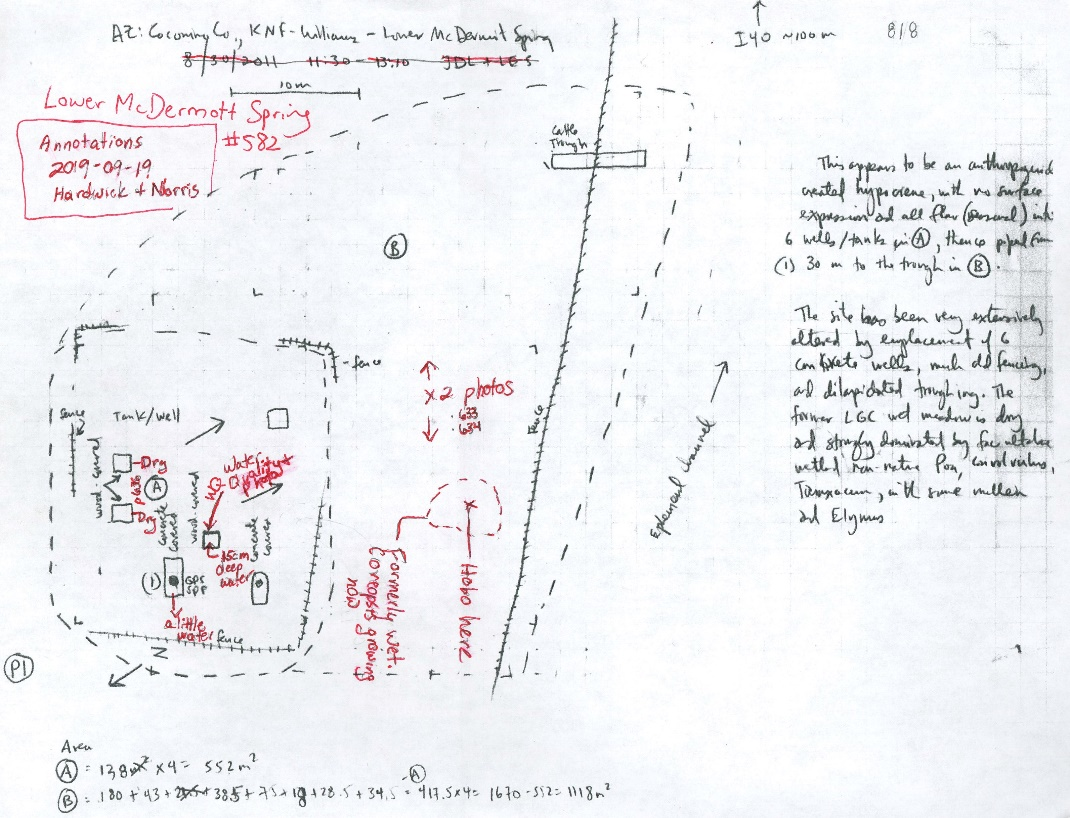 AZ: Coconino Co., KNF-Williams - Lower McDermit Spring
8/30/2011 11:30 - 13:10 JDL + LES
10m
I40 ~100m
8/8
Lower McDermott Spring
#582
Annotations
2019-09-19
Hardwick + Norris
Cattle
Trough
This appears to be an anthropogenic
created hypocrene, with no surface
expression and all flow (seasonal) into
6 wells/tanks in (A), thence piped from
(1) 30 m to the trough in (B).
The site has been very extensively
altered by emplacement of 6
concrete wells, much old fencing,
and dilapidated troughing. The
former LGC wet meadow is dry
and strongly dominated by facultative
wetland non-native Poa, Convolvulus,
Taraxacum, with some mullein
and Elymus
B
fence
fence
Tank/well
x2 photos
633
634
fence
Ephemeral channel
wood covered
Dry
p636
A
Dry
concrete
covered
wood covered
WQ
Water
Quality +
photo
concrete
cover
15cm
deep
water
(1)
GPS
a little
water
fence
N
x
Hobo here
Formerly wet.
Coreopsis growing
now
P1
Area
A = 138m² x4 = 552m²
-A
B = 180 + 43 + 38.5 + 75 + 18 + 28.5 + 34.5 = 417.5x4= 1670 - 552 = 1118m²